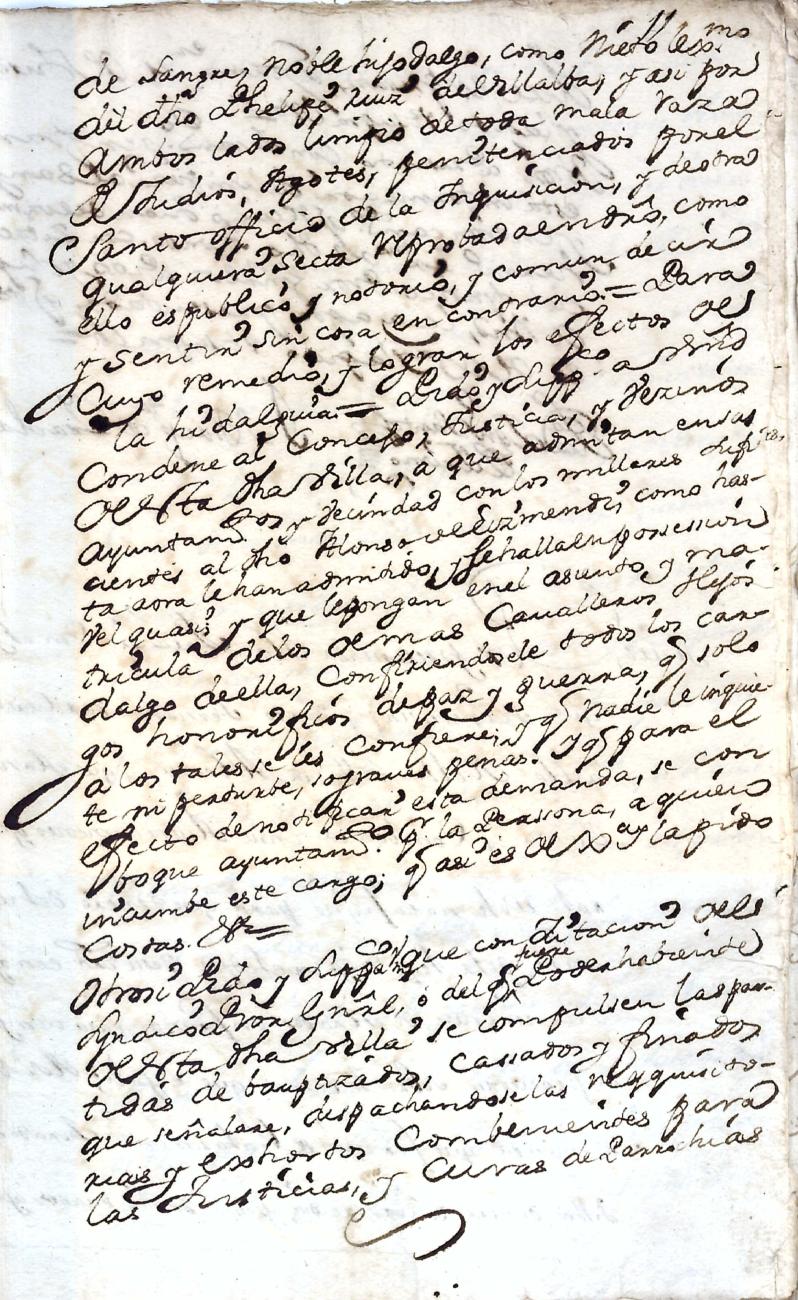 de sangre, noble hijo dalgo, como Nieto lexmo
del dho Dn Phelipe ruiz de Villalba, y asi por
Ambos lados limpio de toda mala raza
de Judios, Agotes, penitenciados por el
Santo officio de la Inquisicion, y de otra
qualquiera secta reprobada en dro, como
ello es publico, y notorio, y comun decir
y sentir sin cosa en contrario = Para
Cuyo remedio, y lograr los efectos de
la hidalguia = Pido y Suppco a Vmd
Condene al Concejo, Justicia, y Vezinos
de esta dha Villa, a que admitan en sus
ayuntamtos y Vecindad con los milleres sufi
cientes al dho Alonso de Urmendi, como has-
ta aora le han admitido, y se halla en possession
vel quasi, y que le pongan en el asunto, y ma-
tricula de los demas Cavalleros Hijos
dalgo de ella, Confiriendosele todos los car-
gos honorificos de paz y guerra, q solo
à los tales se les Confiere, y q nadie le inquie-
te ni perturbe, so graves penas. Y q para el
efecto de notificar esta demanda, se con
boque ayuntamto pr la Perssona, a quien
incumbe este cargo; q asi es de Xa y la pido
Costas. &a =
Otrosi Pido y Suppco que con citacion del
Syndico Pror Gnrl, ò del q fuere Poderhabiente
de esta dha Villa se compulsen las par-
tidas de bauptizados, Cassados y finados
que señalare, despachandose las reqquisito-
rias y exhortos Combenientes para
las Justicias, y Curas de Parrochias